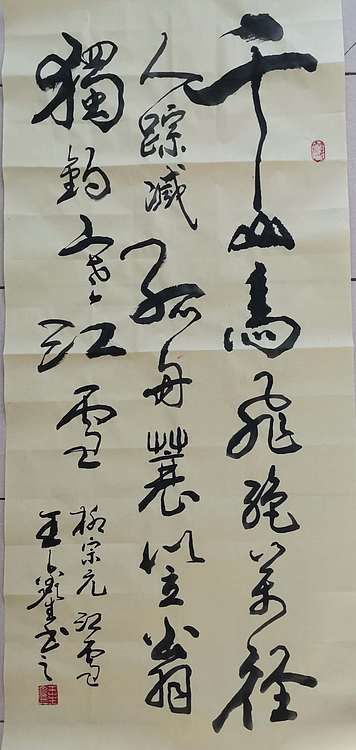 千山鳥飛絕萬径
人踪滅孤舟蓑笠翁
獨釣寒江雪
柳宗元江雪
王书之